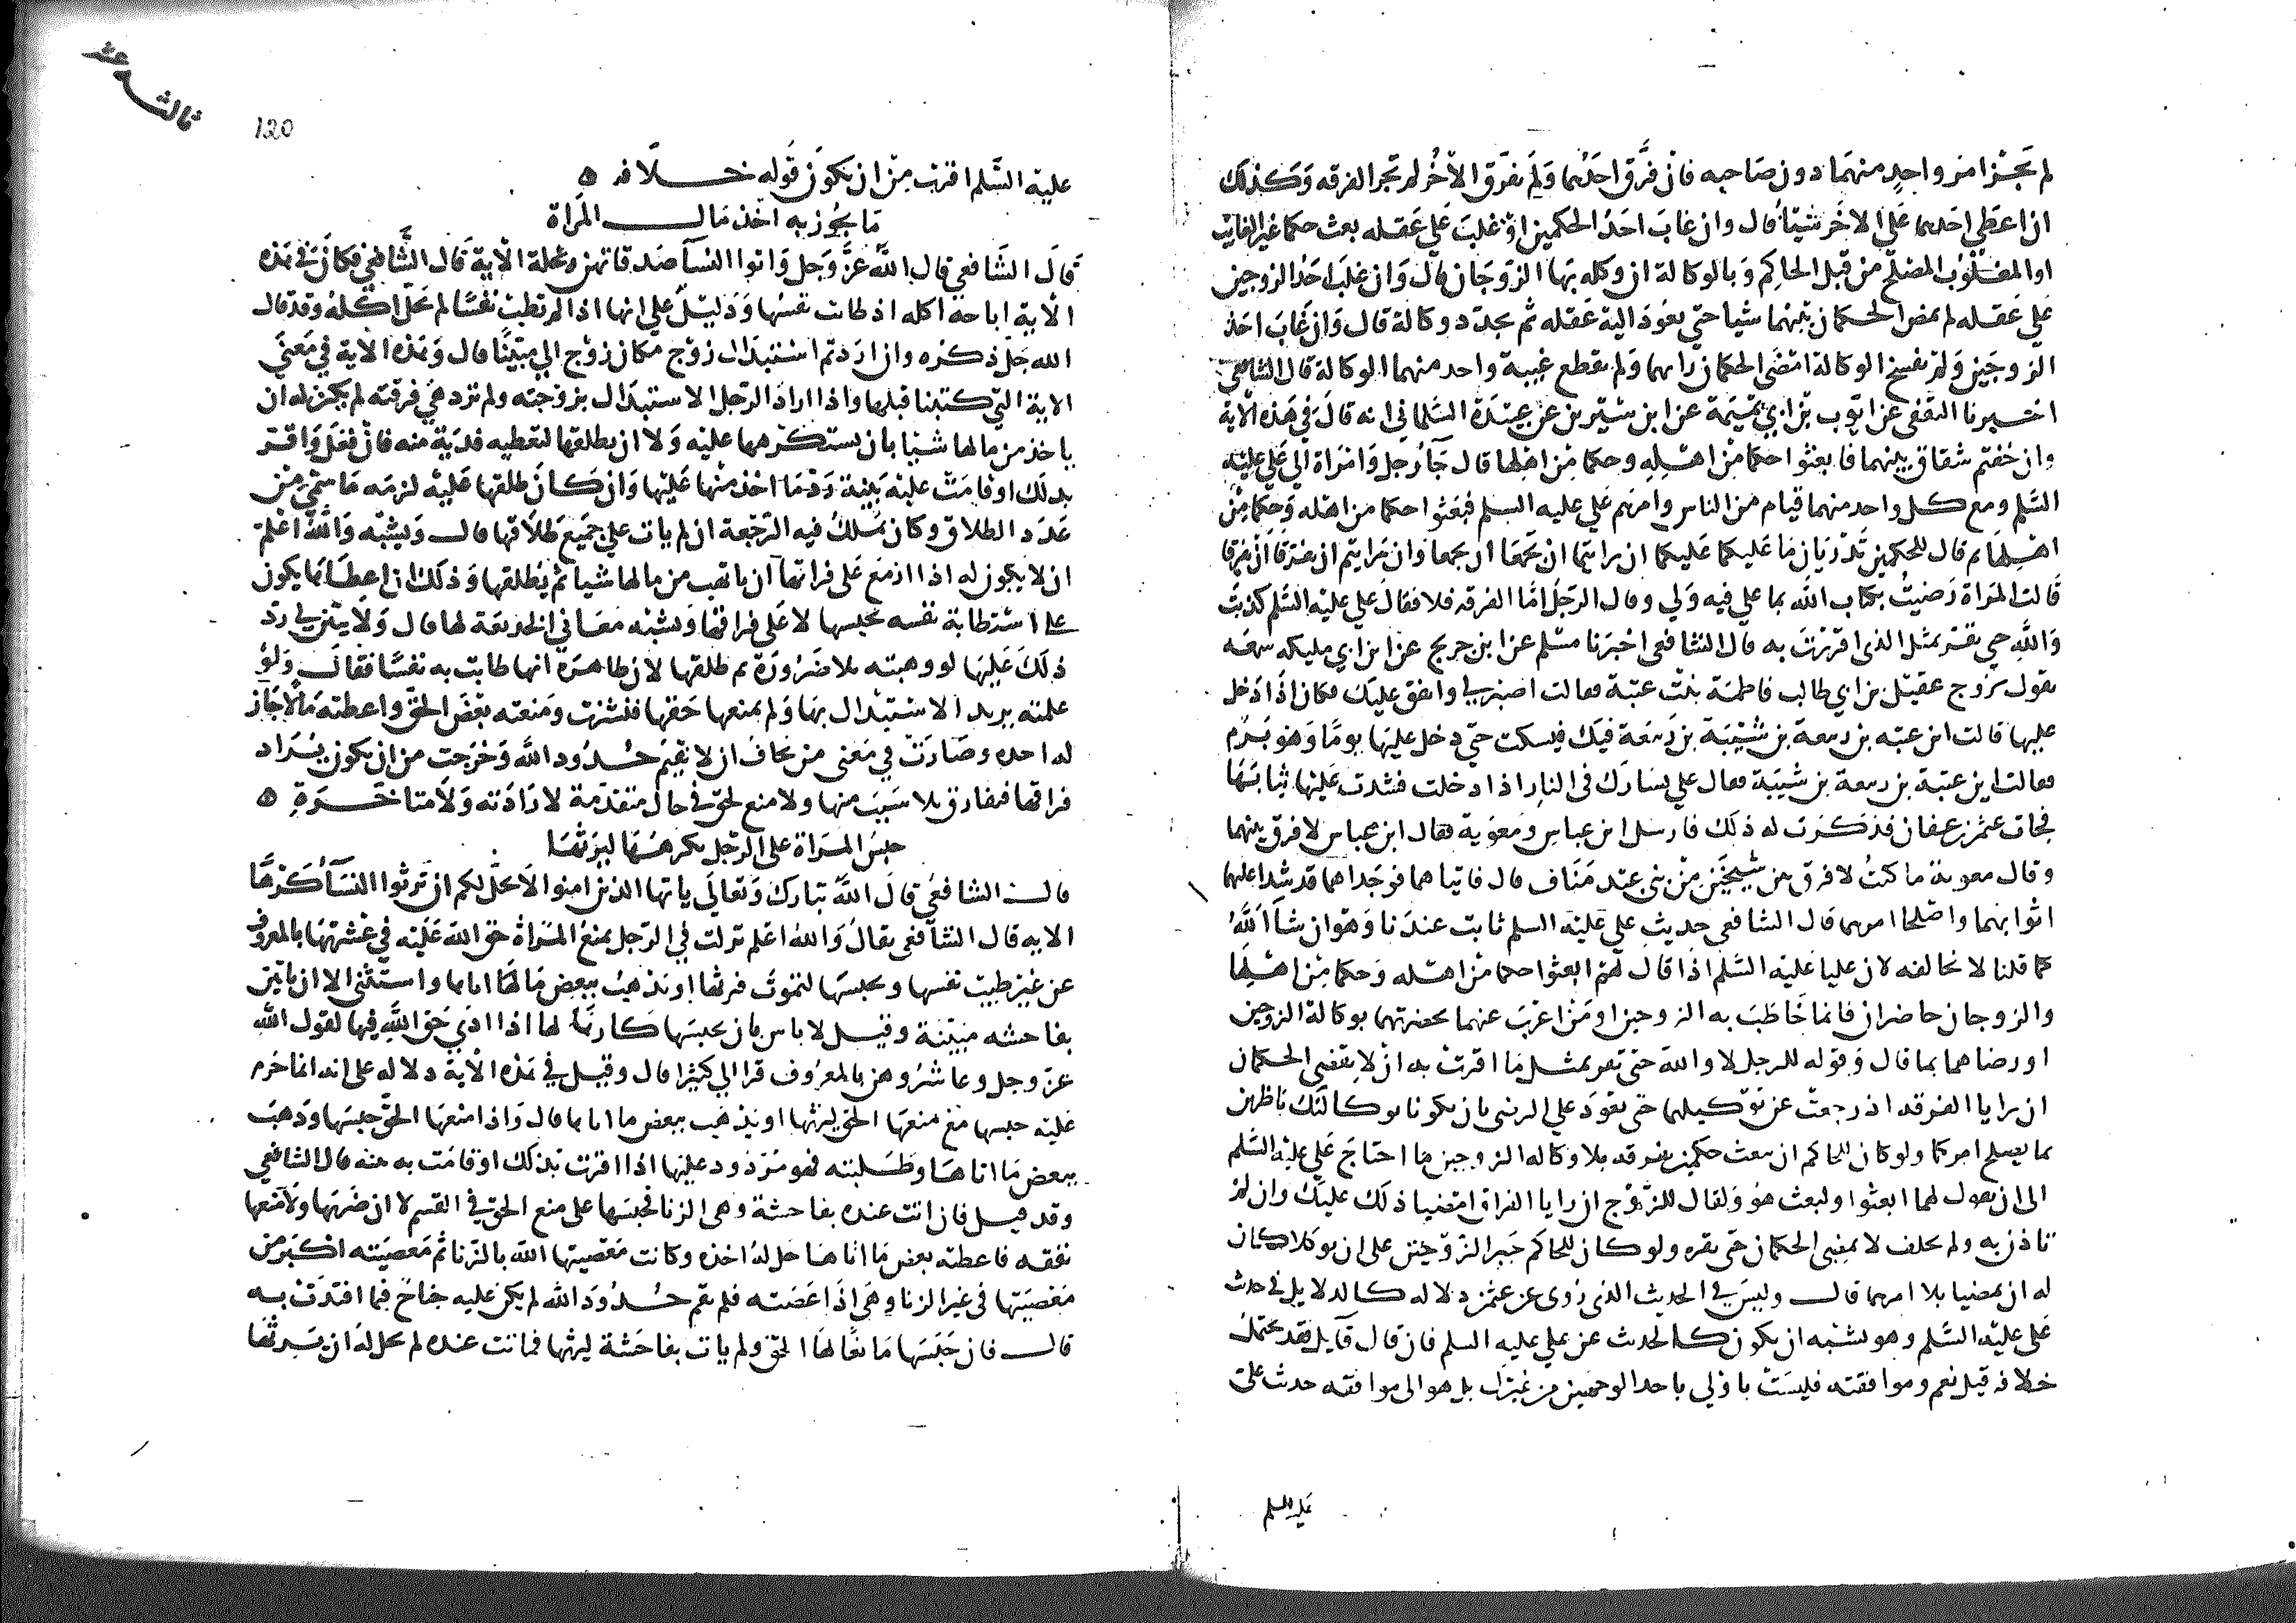 لم يجز امر واحد منهما دون صاحبه فان فرق احدهما ولم يفرق الاخر لم تجز الفرقه وكذلك
ان اعطى احدهما على الاخر شيئا قال وان غاب احد الحكمين او غلب على عقله بعث حكما غير الغايب
او المغلوب المصلح من قبل الحاكم وبالوكالة ان وكله بها الزوجان قال وان غلب احد الزوجين
على عقله لم يمض الحكمان بينهما شيا حتى يعود اليه عقله ثم يجدد وكالة قال وان غاب احد
الزوجين ولم يفسخ الوكالة امضى الحكمان رايهما ولم يقطع غيبة واحد منهما الوكالة قال الشافعي
اخبرنا الثقفي عن ايوب بن ابي تميمة عن ابن سيرين عن عبيدة السلماني انه قال في هذه الاية
وان خفتم شقاق بينهما فابعثوا حكما من اهله وحكما من اهلها قال جا رجل وامراة الى علي عليه
السلم ومع كل واحد منهما فيام من الناس وامرهم علي عليه السلم فبعثوا حكما من اهله وحكما من
اهلها ثم قال للحكمين تدريان ما عليكما عليكما ان رايتما ان تجمعا ان تجمعا وان رايتم ان تفرقا ان تفرقا
قالت المراة رضيت بكتاب الله بما علي فيه ولي وقال الرجل اما الفرقه فلا فقال علي عليه السلم كذبت
والله حتى تقر بمثل الذي اقرت به قال الشافعي اخبرنا مسلم عن ابن جريج عن ابن ابي مليكه سمعه
يقول تزوج عقيل بن ابي طالب فاطمة بنت عتبة فقالت اصبر لي وانفق عليك فكان اذا دخل
عليها قالت اين عتبه بن ربيعة بن شيبة بن ربيعة فيك فيسكت حتى دخل عليها يوما وهو برم
فقالت اين عتبة بن ربيعة بن شيبة فقال على يسارك في النار اذا دخلت فشدت عليها ثيابها
فجات عثمن بن عفان فذكرت له ذلك فارسل ابن عباس ومعوية فقال ابن عباس لافرق بينهما
وقال معوية ما كنت لافرق بين شيخين من بني عبد مناف قال فاتياهما فوجداهما قد شدا عليهما
اثوابهما واصلحا امرهما قال الشافعي حديث علي عليه السلم ثابت عندنا وهو ان شا الله
كما قلنا لا نخالفه لان عليا عليه السلم اذا قال لهم ابعثوا حكما من اهله وحكما من اهلها
والزوجان حاضران فانما خاطب به الزوجين او من اعرب عنهما بحضرتهما بوكالة الزوجين
او رضاهما بما قال وقوله للرجل لا والله حتى تقر بمثل ما اقرت به ان لا يقضي الحكمان
ان رايا الفرقه اذ رجعت عن توكيلهما حتى يعود على الرضى بان يكونا بوكالتك ناظرين
بما يصلح امركما ولو كان للحاكم ان يبعث حكمين بفرقه بلا وكاله الزوجين ما احتاج علي عليه السلم
الى ان يقول لهما ابعثوا ولبعث هو ولقال للزوج ان رايا الفراق امضيا ذلك عليك وان لم
تاذن به ولم يحلف لا يمضي الحكمان حتى يقره ولو كان للحاكم جبر الزوجين على ان يوكلا كان
له ان يمضيا بلا امرهما قال وليس في الحديث الذي روى عن عثمن دلاله كالدلايل في حدث
علي عليه السلم وهو يشبه ان يكون كالحدث عن علي عليه السلم فان قال قايل فقد يحتمل
خلافه قيل نعم وموافقته فليست باولى باحد الوجهين من غيرك بل هو الى موافقه حدث علي
عليه السلم
ثالث عشر
120
عليه السلم اقرب من ان يكون قوله خلافه ه
ما يجوز به اخذ مال المراة
قال الشافعي قال الله عز وجل واتوا النسآ صدقاتهن نحلة الاية قال الشافعي فكان في هذه
الاية اباحة اكله اذ طابت نفسها ودليل على انها اذا لم تطب نفسا لم يحل اكله وقد قال
الله جل ذكره وان اردتم استبدال زوج مكان زوج الى مبينا قال وهذه الاية في معنى
الاية التي كتبنا قبلها واذا اراد الرجل الاستبدال بزوجته ولم ترد هي فرقته لم يكن له ان
ياخذ من مالها شيا بان يستكرهها عليه ولا ان يطلقها لتعطيه فدية منه فان فعل واقر
بذلك او قامت عليه بينة رد ما اخذ منها عليها وان كان طلقها عليه لزمه ما سمى من
عدد الطلاق وكان يملك فيه الرجعة ان لم يات على جميع طلاقها قال ويشبه والله اعلم
ان لا يجوز له اذا ازمع على فراقها ان ياتهب من مالها شيا ثم يطلقها وذلك ان اعطاها يكون
على استطابة نفسه بحبسها لا على فراقها ويشبه معاني الخديعة لها قال ولا يتبين لي رد
ذلك عليها لو وهبته بلا ضرورة ثم طلقها لان ظاهره انها طابت به نفسا فقال ولو
علمته يريد الاستبدال بها ولم يمنعها حقها فنشزت ومنعته بعض الحق واعطته مالا جاز
له اخذه وصارت في معنى من يخاف ان لا يقيم حدود الله وخرجت من ان يكون يراد
فراقها فيفارق بلا سبب منها ولا منع لحق في حال متقدمة لارادته ولا متاخرة ه
حبس المراة على الرجل يكرهها ليرثها
قال الشافعي قال الله تبارك وتعالى يايها الذين امنوا لا يحل لكم ان ترثوا النسآ كرها
الايه قال الشافعي يقال والله اعلم نزلت في الرجل يمنع المراة حق الله عليه في عشرتها بالمعروف
عن غير طيب نفسها ويحبسها لتموت فيرثها او يذهب ببعض ما اتاها واستثنى الا ان ياتين
بفاحشه مبينة وقيل لا باس بان يحبسها كارها لها اذا ادى حق الله فيها لقول الله
عز وجل وعاشروهن بالمعروف قرا الى كثيرا قال وقيل في هذه الاية دلاله على انه انما حرم
عليه حبسها مع منعها الحق ليرثها او يذهب ببعض ما اتاها قال واذا منعها الحق حبسها وذهب
ببعض ما اتاها وطلبته فهو مردود عليها اذا اقرت بذلك او قامت به بينه قال الشافعي
وقد قيل فان اتت عنده بفاحشة وهي الزنا فحبسها على منع الحق في القسم لا ان ضربها ولا منعها
نفقه فاعطته بعض ما اتاها حل له اخذه وكانت معصيتها الله بالزنا ثم معصيته اكبر من
معصيتها في غير الزنا وهي اذا عصته فلم تقم حدود الله لم يكن عليه جناح فيما افتدت به
قال فان حبسها مانعا لها الحق ولم يات بفاحشة ليرثها فماتت عنده لم يحل له ان يرثها